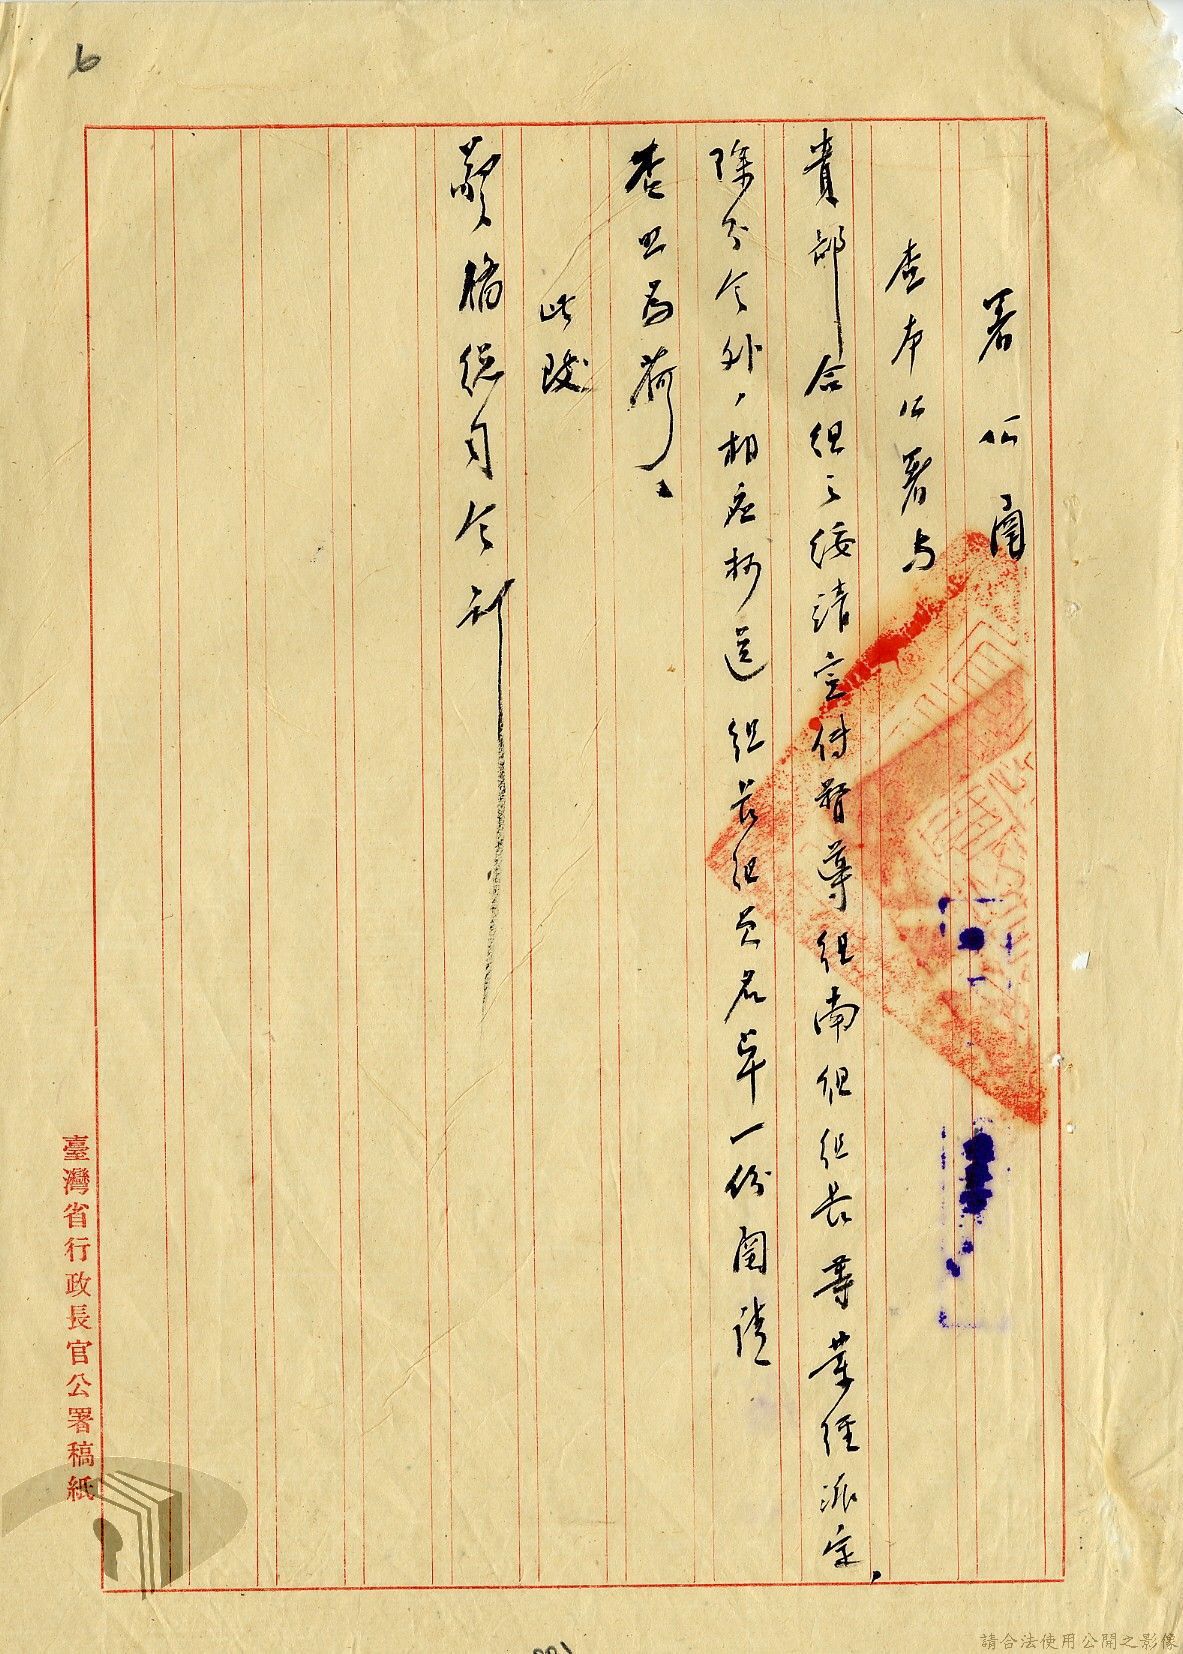 署公函
查本公署与
貴部合組之綏靖宣傳督導組南組組長等業經派定,
除分令外,相应抄送組長組員名单一份函請
查照為荷。
此致
警備總司令部
臺灣省行政長官公署稿紙
6
請合法使用公開之影像